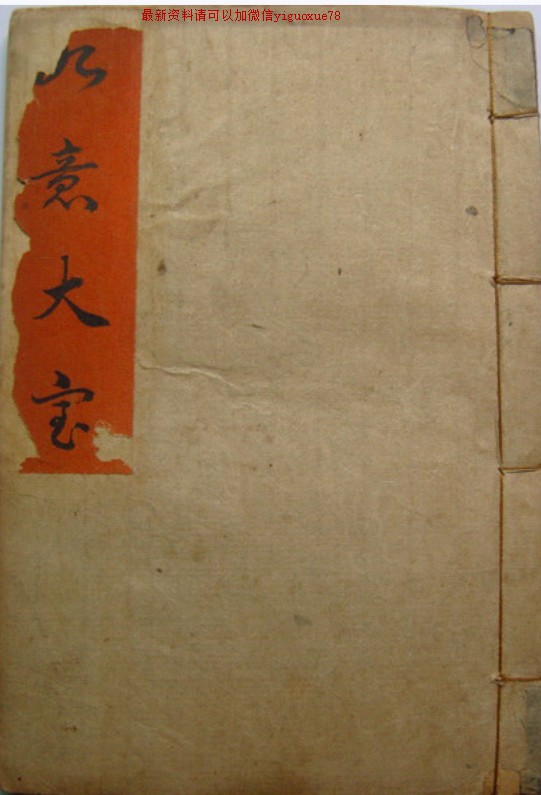 最新资料请可以加微信yiguoxue78
意大宝